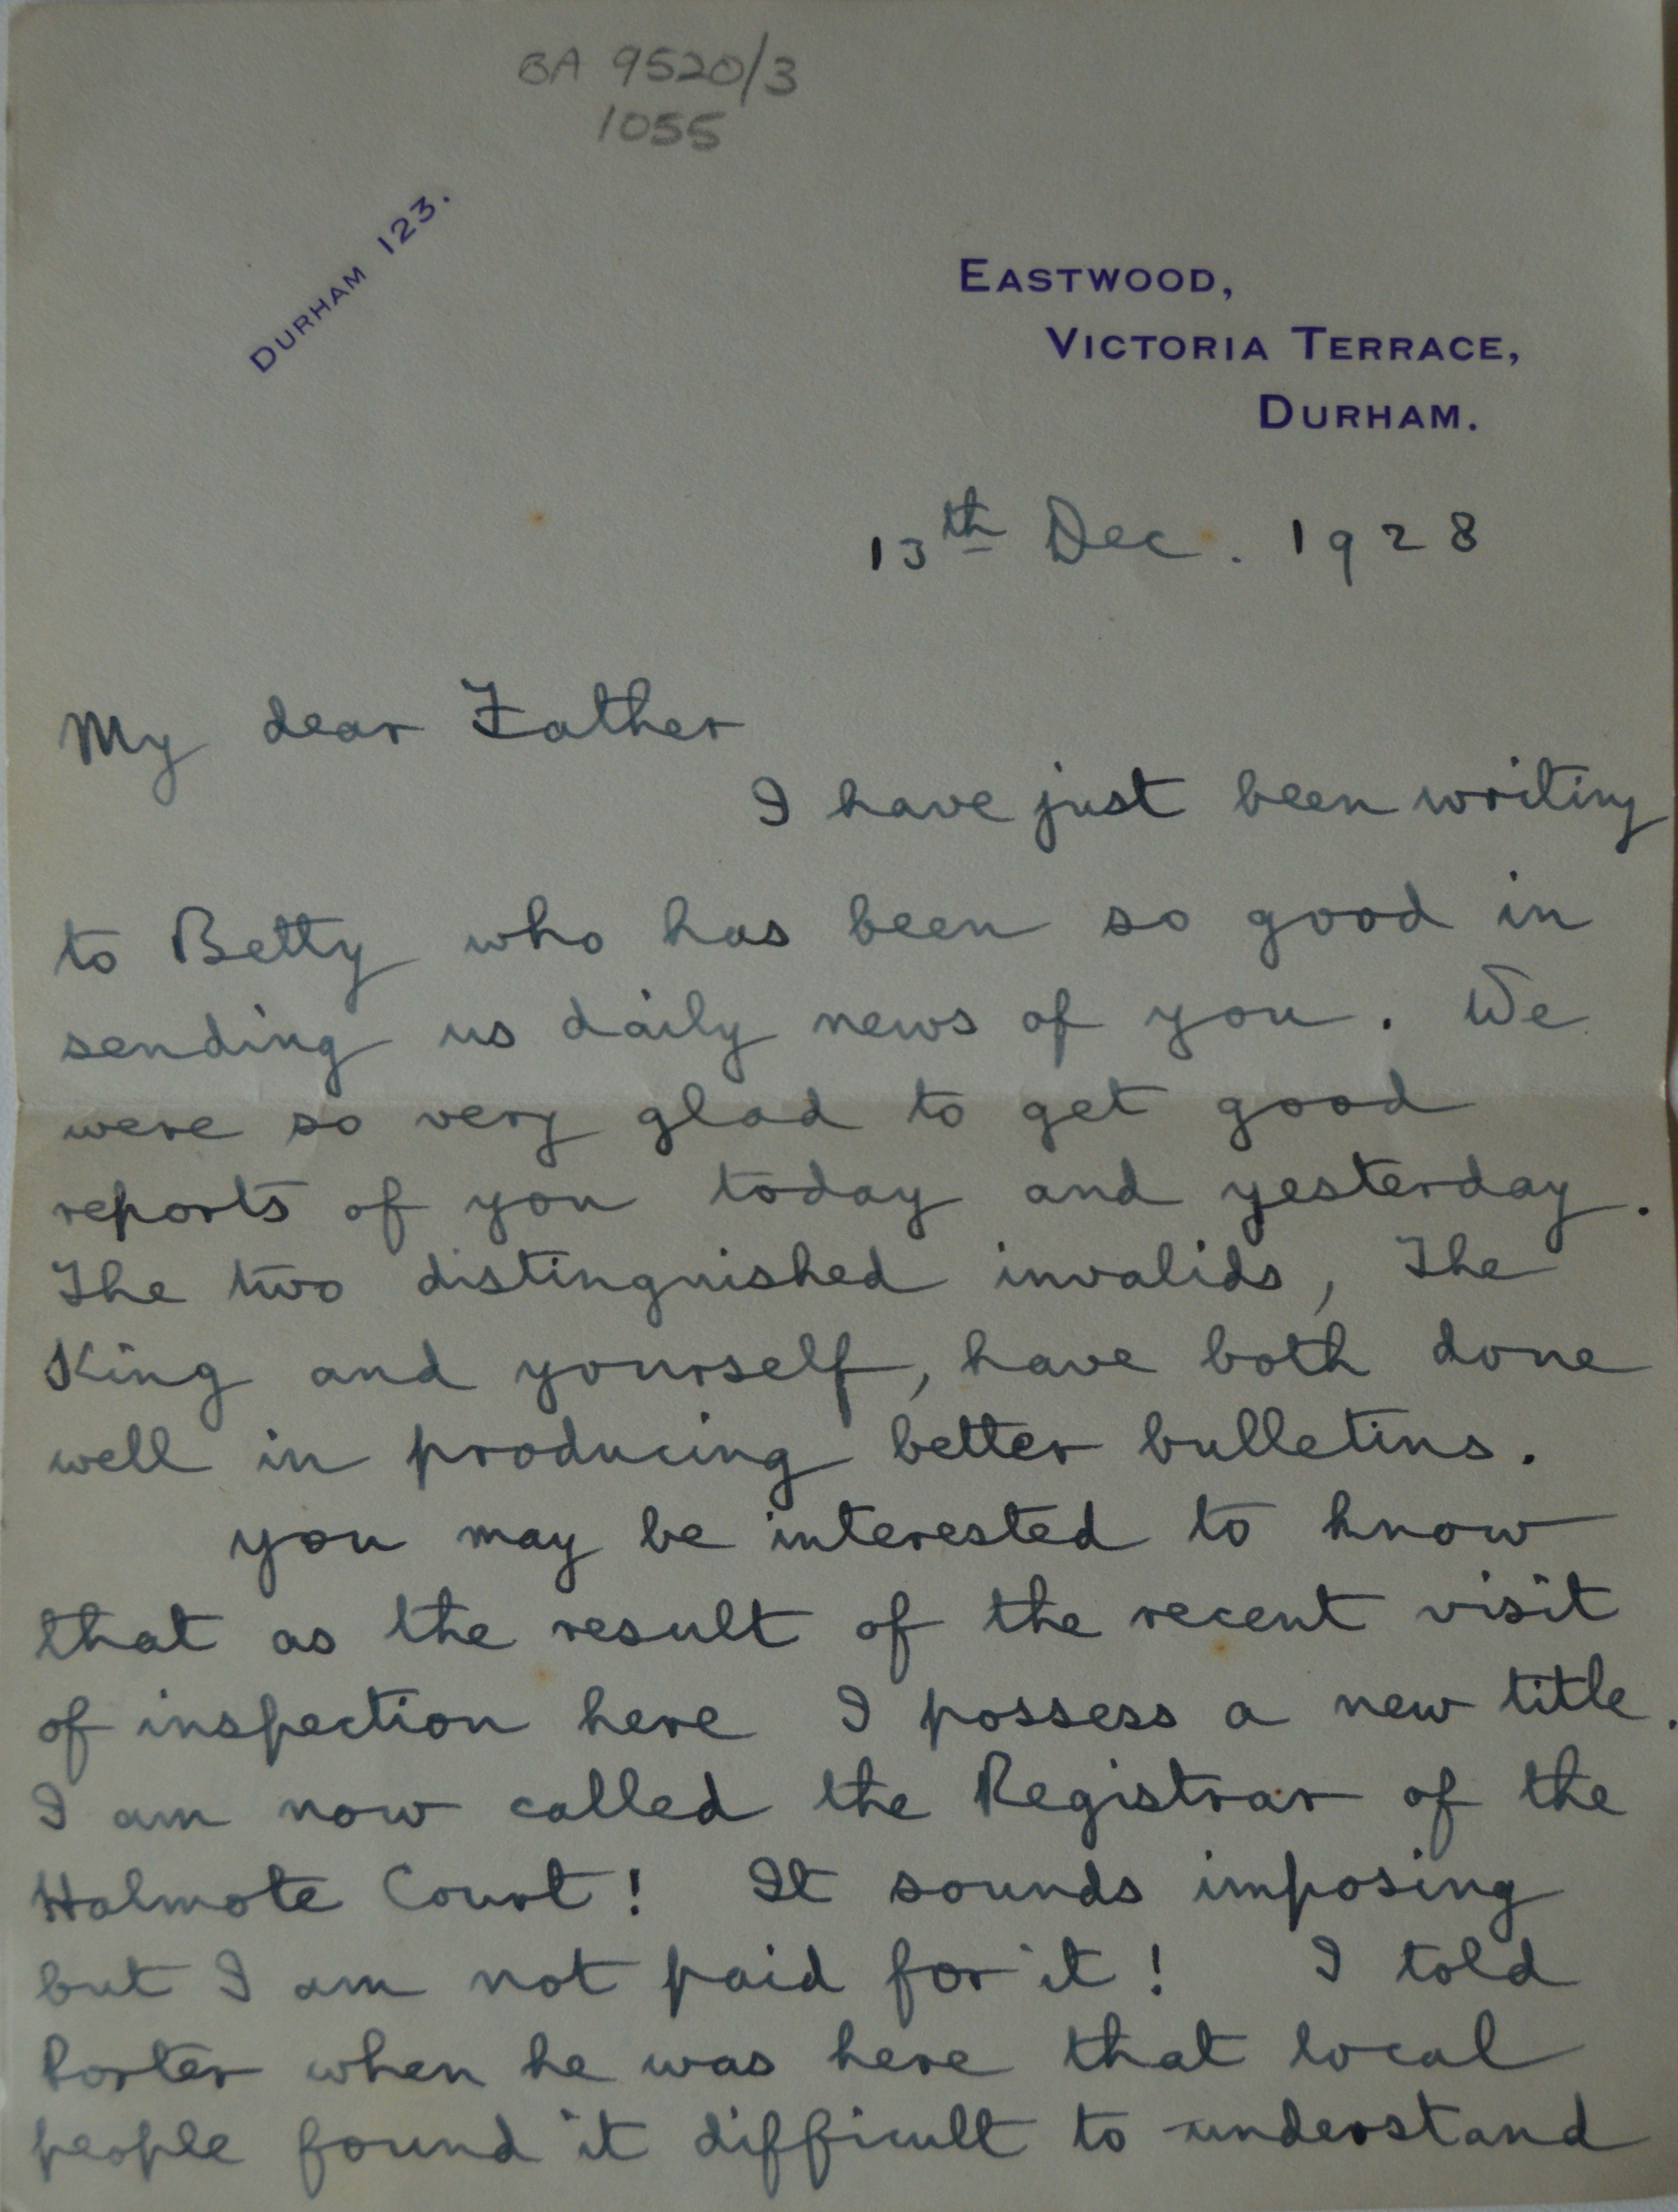 BA 9520/3
1055
DURHAM 123.
EASTWOOD,
VICTORIA TERRACE,
DURHAM.
13th Dec. 1928
My dear Father
I have just been writing
to Betty who has been so good in
sending us daily news of you. We
were so very glad to get good
reports of you today and yesterday.
The two distinguished invalids, The
King and yourself, have both done
well in producing better bulletins.
you may be interested to know
that as the result of the recent visit
of inspection here I possess a new title.
I am now called the Registrar of the
Halmote Court! It sounds imposing
but I am not paid for it! I told
Porter when he was here that local
people found it difficult to understand